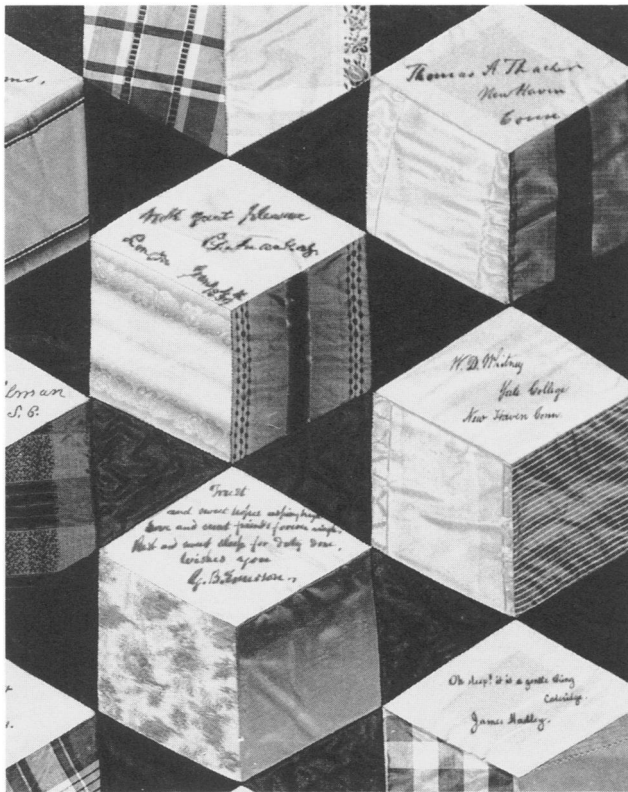 ms.
Thomas A Thacher
New Haven
Conn
With great pleasure
London
W. D. Whitney
Yale College
New Haven Conn
lman
S. C.
Trust
and sweet hopes
and sweet friends forever
Rest and sweet sleep for Duty done,
Wishes your
G. B. Emerson.
Oh sleep! it is a gentle thing
Coleridge.
James Hadley.